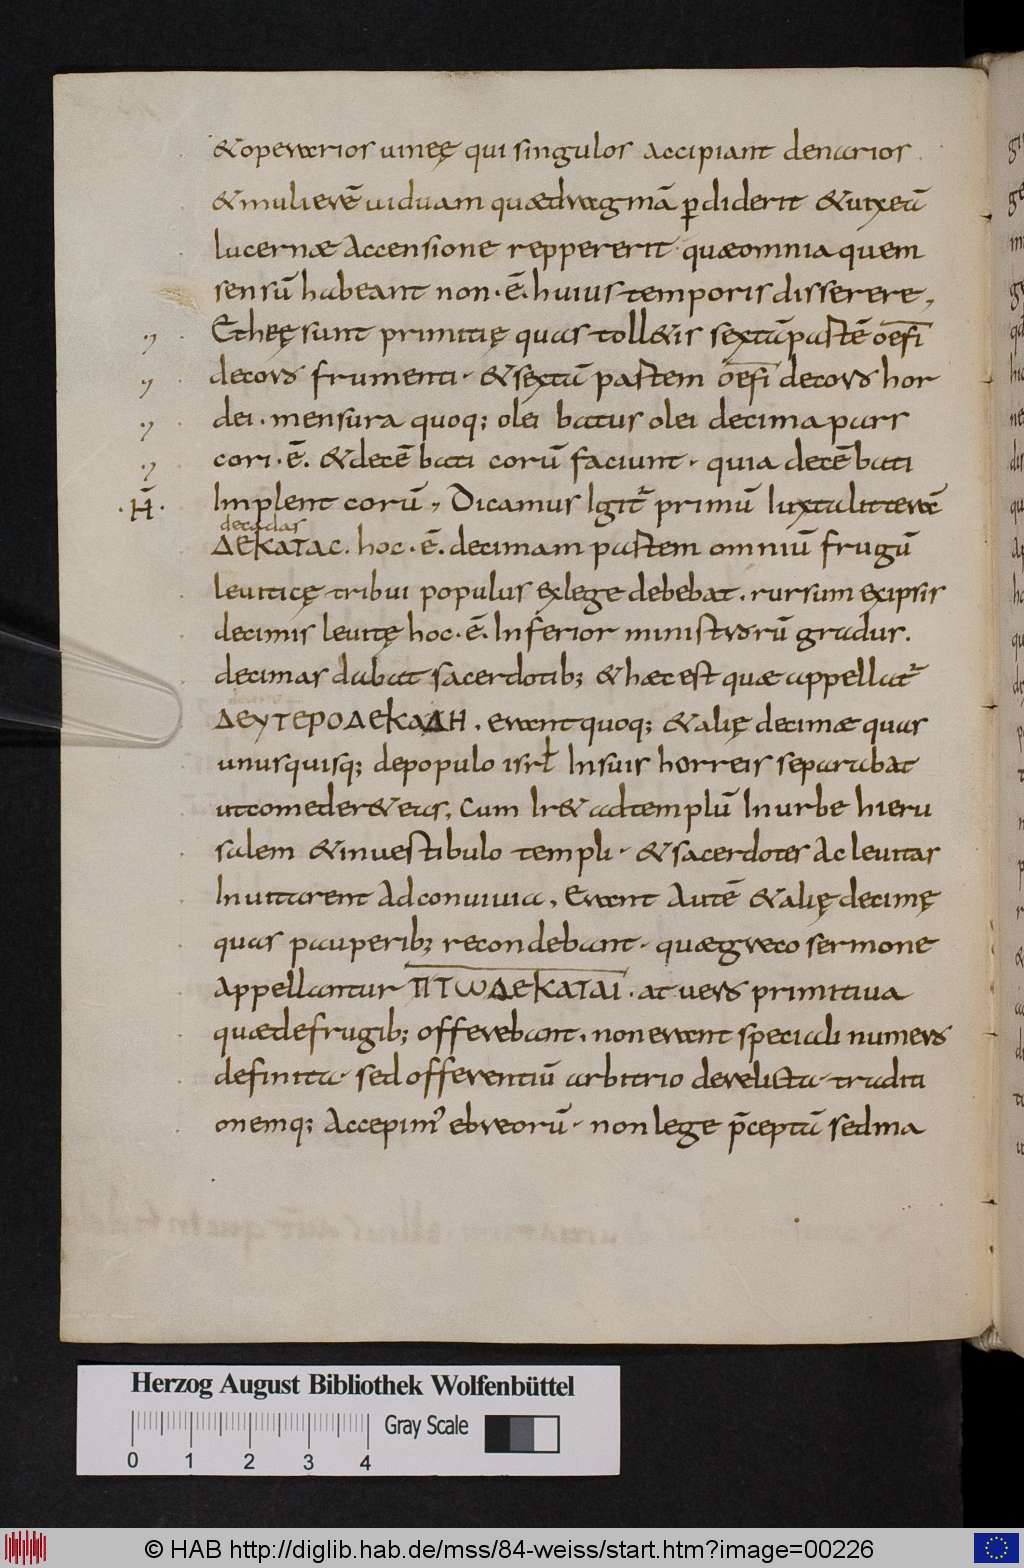 & operarios uineę qui singulos accipiant denarios.
& mulierē uiduam quæ dragmā ꝑdiderit & ut xeā
lucernæ accensione reppererit quæ omnia quem
sensū habeant non · ē · huius temporis disserere,
Et heę sunt primitię quas toll&is sextā partē oefi
decoro frumenti · & sextā partem oefi decoro hor
dei · mensura quoq; olei batus olei decima pars
cori · ē · & decē bati corū faciunt · quia decē bati
·H̄· Implent corū, Dicamus Igit̄ primū Iuxta litterā
decadas
ΔΕΚΑΤΑC. hoc · ē · decimam partem omniū frugū
leuiticę tribui populus ex lege debebat. rursum ex ipsis
decimis leuitę hoc · ē · Inferior ministrorū gradus.
decimas dabat sacerdotib; & hæc est quæ appellat̄
ΔΕΥΤΕΡΟΔΕΚΑΔΗ. erant quoq; & alię decimæ quas
unusquisq; de populo isrł In suis horreis separabat
ut comeder& eas. Cum Ir& ad templū In urbe hieru
salem & in uestibulo templi · & sacerdotes Ac leuitas
Inuitarent Ad conuiuia. Erant Autē & alię decimę
quas pauperib; recondebant · quæ greco sermone
Appellantur ΠΤωΔΕΚΑΤΑΙ · at uero primitiua
quæ de frugib; offerebant. non erant speciali numero
definita · sed offerentiū arbitrio derelicta · traditi
onemq; Accepim' ebreorū · non lege p̄ceptā sed ma
Herzog August Bibliothek Wolfenbüttel
Gray Scale
0 1 2 3 4
© HAB http://diglib.hab.de/mss/84-weiss/start.htm?image=00226